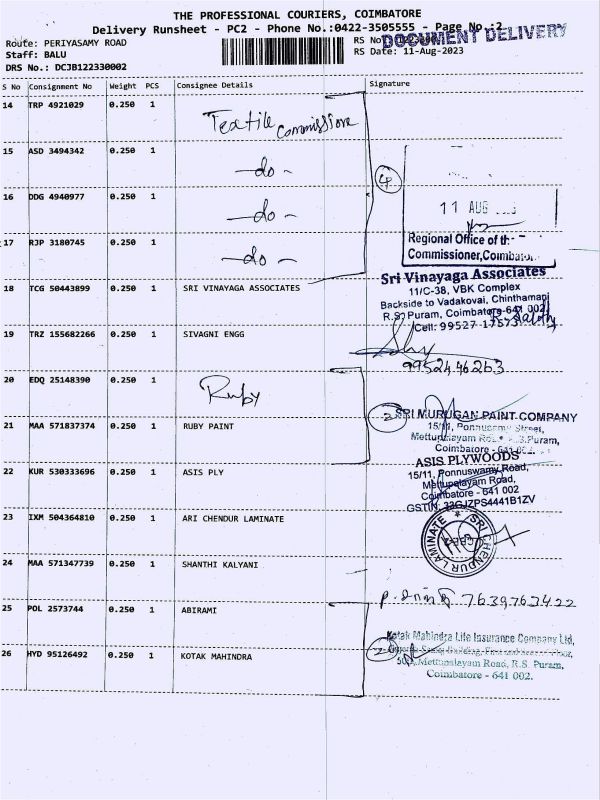 THE PROFESSIONAL COURIERS, COIMBATORE
Delivery Runsheet - PC2 - Phone No.:0422-3505555 - Page No.:2
Route: PERIYASAMY ROAD
Staff: BALU
DRS No.: DCJB122330002
RS No
RS Date: 11-Aug-2023
DOCUMENT DELIVERY
S No Consignment No Weight PCS Consignee Details Signature
14 TRP 4921029 0.250 1 Textile Commissione
15 ASD 3494342 0.250 1 -do-
16 DDG 4940977 0.250 1 -do-
17 RJP 3180745 0.250 1 -do-
4
11 AUG
Regional Office of th
Commissioner, Coimbator
18 TCG 50443899 0.250 1 SRI VINAYAGA ASSOCIATES
Sri Vinayaga Associates
11/C-38, VBK Complex
Backside to Vadakovai, Chinthamani
R.S. Puram, Coimbatore-641 002
Cell: 99527 17573
19 TRZ 155682266 0.250 1 SIVAGNI ENGG
9952446263
20 EDQ 25148390 0.250 1 Ruby
21 MAA 571837374 0.250 1 RUBY PAINT
2
SRI MURUGAN PAINT COMPANY
15/11, Ponnusamy Street,
Mettupalayam R.S.Puram,
Coimbatore - 641
22 KUR 530333696 0.250 1 ASIS PLY
ASIS PLYWOODS
15/11, Ponnuswamy Road,
Mettupalayam Road,
Coimbatore - 641 002
GSTIN: 33GJZPS4441B1ZV
23 IXM 504364810 0.250 1 ARI CHENDUR LAMINATE
SRI CHENDUR LAMINATE
CBE-2
24 MAA 571347739 0.250 1 SHANTHI KALYANI
7639763422
25 POL 2573744 0.250 1 ABIRAMI
26 HYD 95126492 0.250 1 KOTAK MAHINDRA
2
Kotak Mahindra Life Insurance Company Ltd,
Building, First and Floor,
Mettupalayam Road, R.S. Puram,
Coimbatore - 641 002.